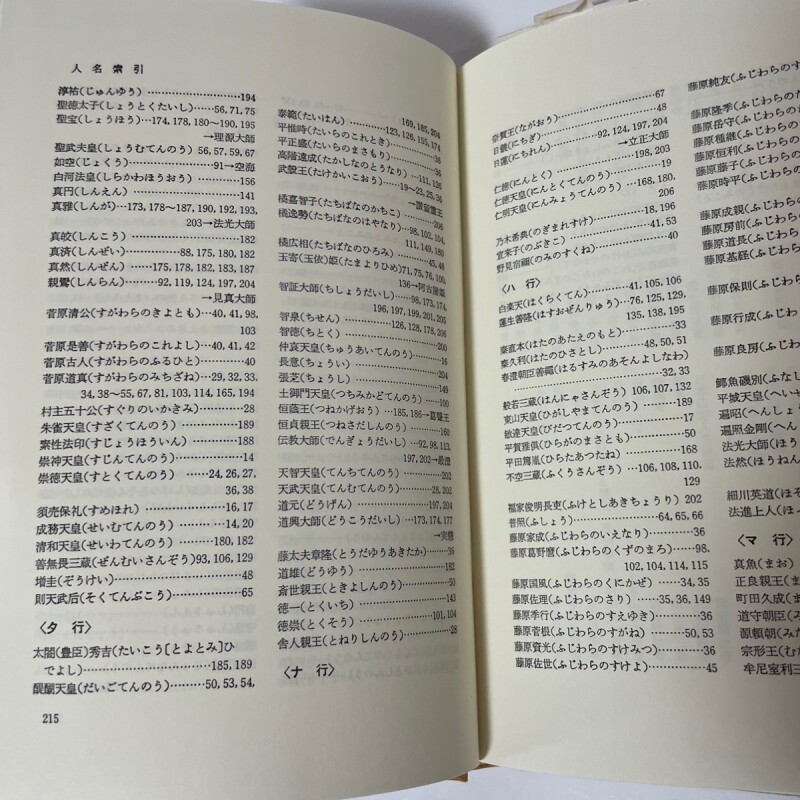 人名索引
淳祐(じゅんゆう)…………………………194
聖徳太子(しょうとくたいし)……56,71,75
聖宝(しょうほう)…174,178,180〜190,195
→理源大師
聖武天皇(しょうむてんのう) 56,57,59,67
如空(じょくう)…………………91→空海
白河法皇(しらかわほうおう)…………156
真円(しんえん)…………………………141
真雅(しんが)…173,178〜187,190,192,193,
203→法光大師
真皎(しんこう)…………………………182
真済(しんぜい)…………88,175,180,182
真然(しんぜん)……175,178,182,183,187
親鸞(しんらん)………92,119,124,197,204
→見真大師
菅原清公(すがわらのきよとも)…40,41,98,
103
菅原是善(すがわらのこれよし)…40,41,42
菅原古人(すがわらのふるひと)…………40
菅原道真(すがわらのみちざね)…29,32,33,
34,38〜55,67,81,103,114,165,194
村主五十公(すぐりのいかきみ)…………28
朱雀天皇(すざくてんのう)……………189
素性法印(すじょうほういん)…………188
崇神天皇(すじんてんのう)………………14
崇徳天皇(すとくてんのう)……24,26,27,
36,38
須売保礼(すめほれ)…………………16,17
成務天皇(せいむてんのう)…………14,20
清和天皇(せいわてんのう)………180,182
善無畏三蔵(ぜんむいさんぞう)93,106,129
増圭(ぞうけい)……………………………48
則天武后(そくてんぶこう)………………65
〈タ 行〉
太閤(豊臣)秀吉(たいこう[とよとみ]ひ
でよし)………………………185,189
醍醐天皇(だいごてんのう)………50,53,54,
169,185,204
泰範(たいはん)…………123,126,155,174
平惟時(たいらのこれとき)………………36
平正盛(たいらのまさもり)………………36
高階遠成(たかしなのとうなり)…111,136
武鼓王(たけかいこおう)……19〜23,25,36
→讃留霊王
橘嘉智子(たちばなのかちこ)……………66
橘逸勢(たちばなのはやなり)…98,102,104,
111,149,180
橘広相(たちばなのひろみ)…………45,46
玉寄(玉依)姫(たまよりひめ)71,75,76,100,
136→阿古屋姫
智証大師(ちしょうだいし)……98,173,174,
196,197,199,201,205
智泉(ちせん)……………126,128,178,206
智徳(ちとく)……………………………200
仲哀天皇(ちゅうあいてんのう)…………16
長意(ちょうい)…………………………164
張芝(ちょうし)…………………………149
土御門天皇(つちみかどてんのう)……100
恒蔭王(つねかげおう)……185,186→葛聲王
恒貞親王(つねさだしんのう)…………180
伝教大師(でんぎょうだいし)……92,98,113,
197,202→最澄
天智天皇(てんちてんのう)……………202
天武天皇(てんむてんのう)…………28,202
道元(どうげん)……………………197,204
道興大師(どうこうだいし)……173,174,177
→実慧
藤太夫章隆(とうだゆうあきたか)………36
道雄(どうゆう)…………………………182
斎世親王(ときよしんのう)………………50
徳一(とくいち)…………………………143
徳崇(とくそう)……………………101,104
舎人親王(とねりしんのう)………………28
〈ナ 行〉
215
奈賀王(ながおう)…………………………67
日羲(にちぎ)………………………………48
日蓮(にちれん)………92,124,197,204
→立正大師
仁徳(にんとく)……………………198,203
仁徳天皇(にんとくてんのう)……………19
仁明天皇(にんみょうてんのう)…168,180,
206
乃木希典(のぎまれすけ)…………18,196
宣来子(のぶきこ)…………………41,53
野見宿禰(のみのすくね)…………………40
〈ハ 行〉
白楽天(はくらくてん)………41,105,106
蓮生善隆(はすおぜんりゅう)…76,125,129,
135,138,195
秦直本(はたのあたえのもと)……………33
秦久利(はたのひさとし)………48,50,51
春澄朝臣善縄(はるすみのあそんよしなわ)
………………………………………32,33
般若三蔵(はんにゃさんぞう) 106,107,132
東山天皇(ひがしやまてんのう)………189
敏達天皇(びだつてんのう)………………48
平賀雅俱(ひらがのまさとも)……………50
平田篤胤(ひらたあつたね)……………168
不空三蔵(ふくうさんぞう)…106,108,110,
129
福家俊明長吏(ふけとしあきちょうり)202
普照(ふしょう)……………………64,65,66
藤原家成(ふじわらのいえなり)…………36
藤原葛野麿(ふじわらのくずのまろ)…98,
102,104,114,115
藤原国風(ふじわらのくにかぜ)……34,35
藤原佐理(ふじわらのさり)……35,36,149
藤原季行(ふじわらのすえゆき)…………36
藤原菅根(ふじわらのすがね)………50,53
藤原資光(ふじわらのすけみつ)…………36
藤原佐世(ふじわらのすけよ)……………45
藤原純友(ふじわらのす
藤原隆季(ふじわらのた
藤原岳守(ふじわらの
藤原種継(ふじわらの
藤原恒利(ふじわらの
藤原藤子(ふじわらの
藤原時平(ふじわらの
藤原成親(ふじわら
藤原房前(ふじわら
藤原道長(ふじわら
藤原基経(ふじわら
藤原保則(ふじわら
藤原行成(ふじわら
藤原良房(ふじわ
鰐魚磯別(ふなし
平城天皇(へいせ
遍昭(へんしょ
遍照金剛(へん
法光大師(ほう
法然(ほうねん
細川英道(ほそ
法進上人(ほ
〈マ 行〉
真魚(まお)
正良親王(ま
町田久成(ま
道守朝臣(み
源頼朝(みな
宗形王(む
牟尼室利三